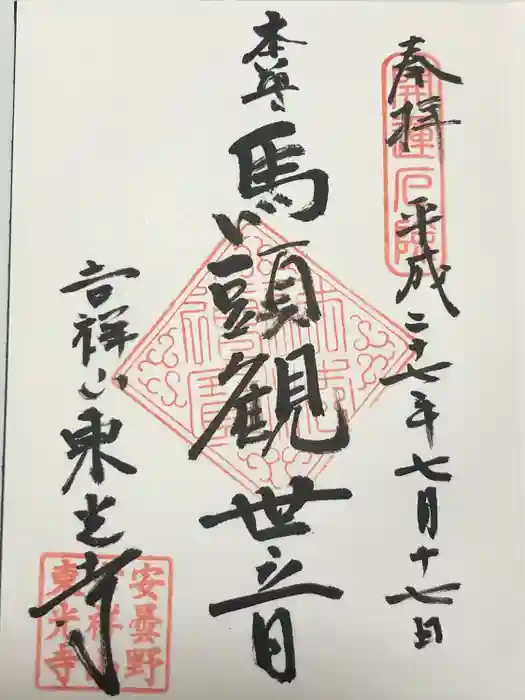 奉拝 平成二十七年七月十七日
開運厄除
本尊 馬頭観世音
吉祥山 東光寺
安曇野
吉祥山
東光寺